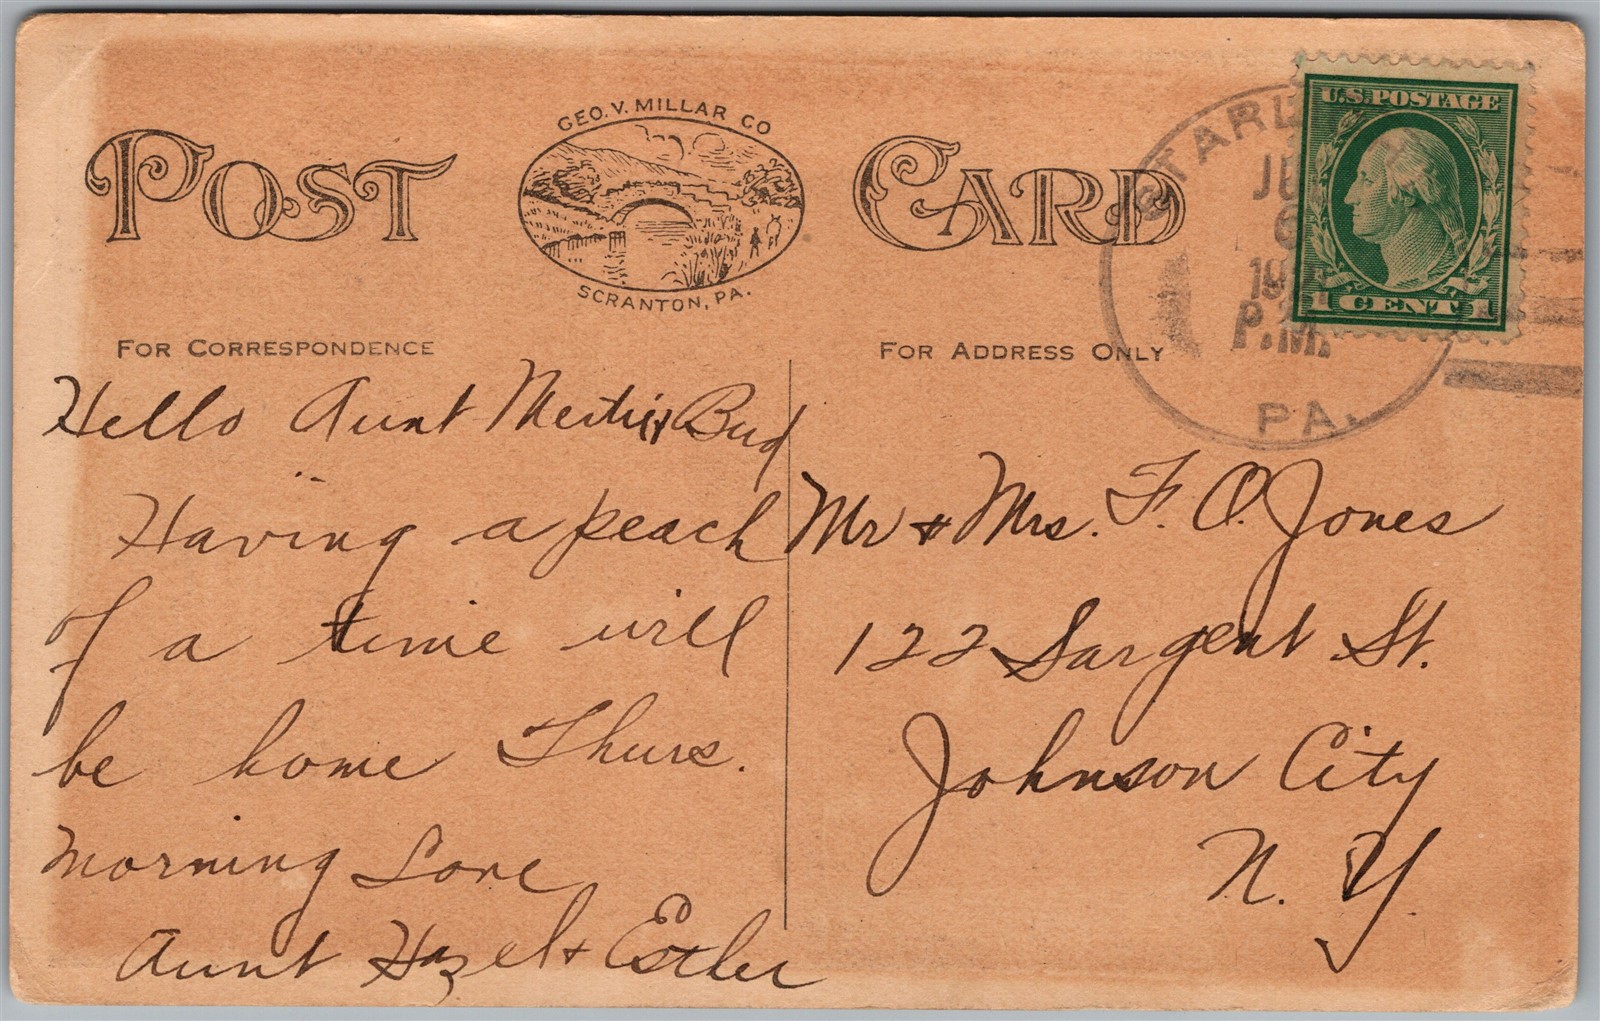 POST CARD
GEO. V. MILLAR CO
SCRANTON, PA.
U.S. POSTAGE
1 CENT 1
6
P.M.
PA.
FOR CORRESPONDENCE
FOR ADDRESS ONLY
Hello Aunt Bud
Having a peach
of a time will
be home Thurs.
morning Love
Aunt Hazel + Esther
Mr + Mrs. F. O. Jones
122 Sargent St.
Johnson City
N. Y.